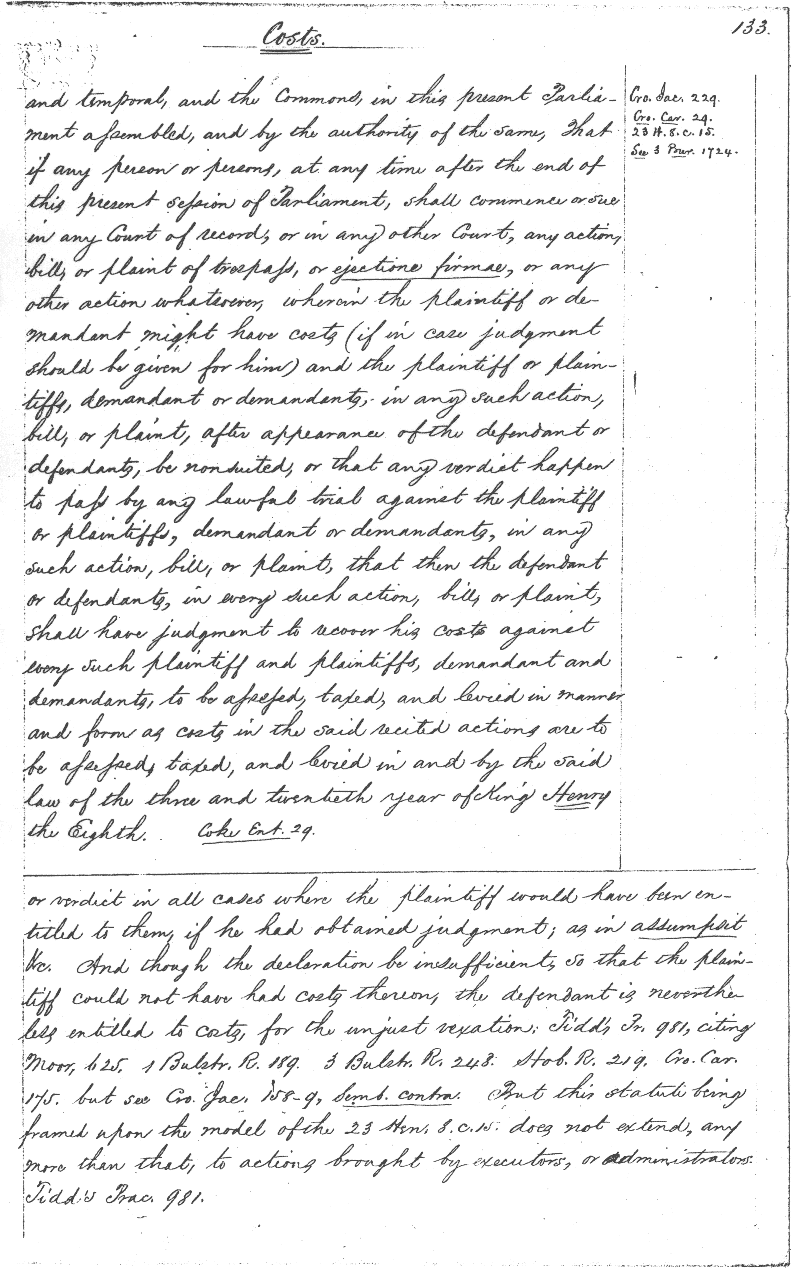 133.
Costs.
and temporal, and the Commons, in this present Parlia-
ment assembled, and by the authority of the same, That
if any person or persons, at any time after the end of
this present session of Parliament, shall commence or sue
in any Court of record, or in any other Court, any action,
bill, or plaint of trespass, or ejectione firmae, or any
other action whatsoever, wherein the plaintiff or de-
mandant might have costs (if in case judgment
should be given for him) and the plaintiff or plain-
tiffs, demandant or demandants, in any such action,
bill, or plaint, after appearance of the defendant or
defendants, be nonsuited, or that any verdict happen
to pass by any lawful trial against the plaintiff
or plaintiffs, demandant or demandants, in any
such action, bill, or plaint, that then the defendant
or defendants, in every such action, bill, or plaint,
shall have judgment to recover his costs against
every such plaintiff and plaintiffs, demandant and
demandants, to be assessed, taxed, and levied in manner
and form as costs in the said recited actions are to
be assessed, taxed, and levied in and by the said
law of the three and twentieth year of King Henry
the Eighth. Coke Ent. 29.
Cro. Jac. 229.
Cro. Car. 29.
23 H. 8. c. 15.
See 3 Burr. 1724.
or verdict in all cases where the plaintiff would have been en-
titled to them, if he had obtained judgment; as in assumpsit
&c. And though the declaration be insufficient, so that the plain-
tiff could not have had costs thereon, the defendant is neverthe
less entitled to costs, for the unjust vexation: Tidd's Pr. 981, citing
Moor, 625. 1 Bulstr. R. 189. 3 Bulstr. R. 248. Hob. R. 219. Cro. Car.
175. but see Cro. Jac. 158-9, Semb. contra. But this statute being
framed upon the model of the 23 Hen. 8. c. 15. does not extend, any
more than that, to actions brought by executors, or administrators.
Tidd's Prac. 981.